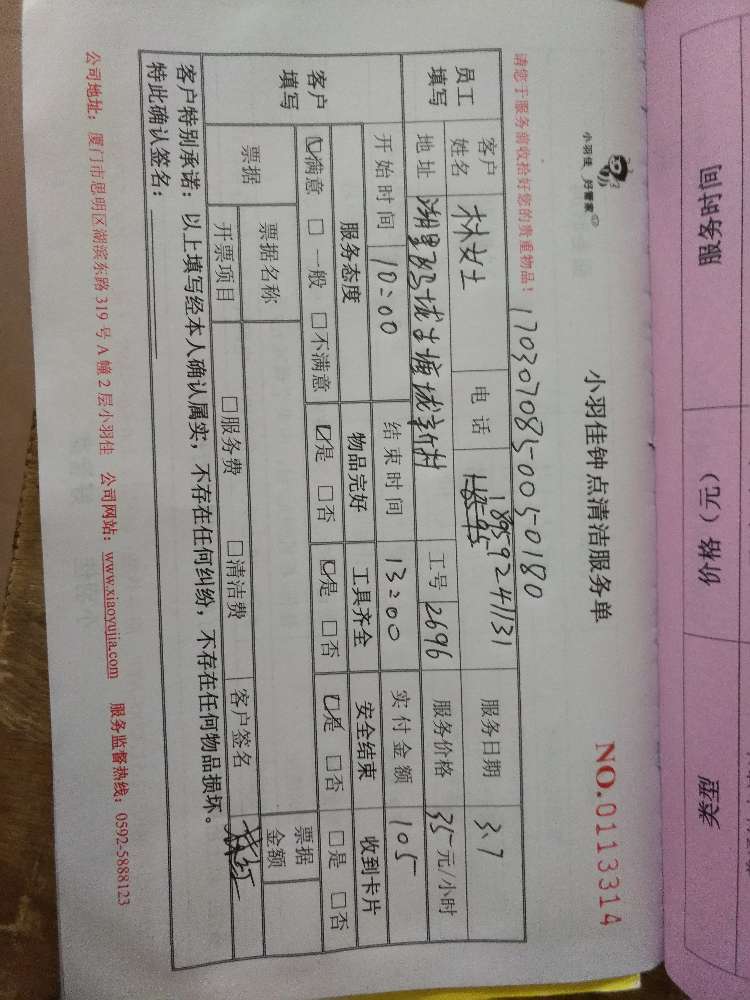 小羽佳 好管家
小羽佳钟点清洁服务单
NO.0113314
170307083-005-0180
请您于服务前收拾好您的贵重物品!
员工填写
客户姓名 林女士 电话 18959241131 服务日期 3.7
地址 工号 2696 服务价格 35元/小时
开始时间 10:00 结束时间 13:00 实付金额 105
客户填写
服务态度 物品完好 工具齐全 安全结束 收到卡片
☑满意 □一般 □不满意 ☑是 □否 ☑是 □否 ☑是 □否 □是 □否
票据 票据名称 票据金额
开票项目 □服务费 □清洁费 客户签名
客户特别承诺:以上填写经本人确认属实,不存在任何纠纷,不存在任何物品损坏。
特此确认签名:
公司地址:厦门市思明区湖滨东路319号A幢2层小羽佳 公司网站:www.xiaoyujia.com 服务监督热线:0592-5888123
服务时间
价格(元)
类型